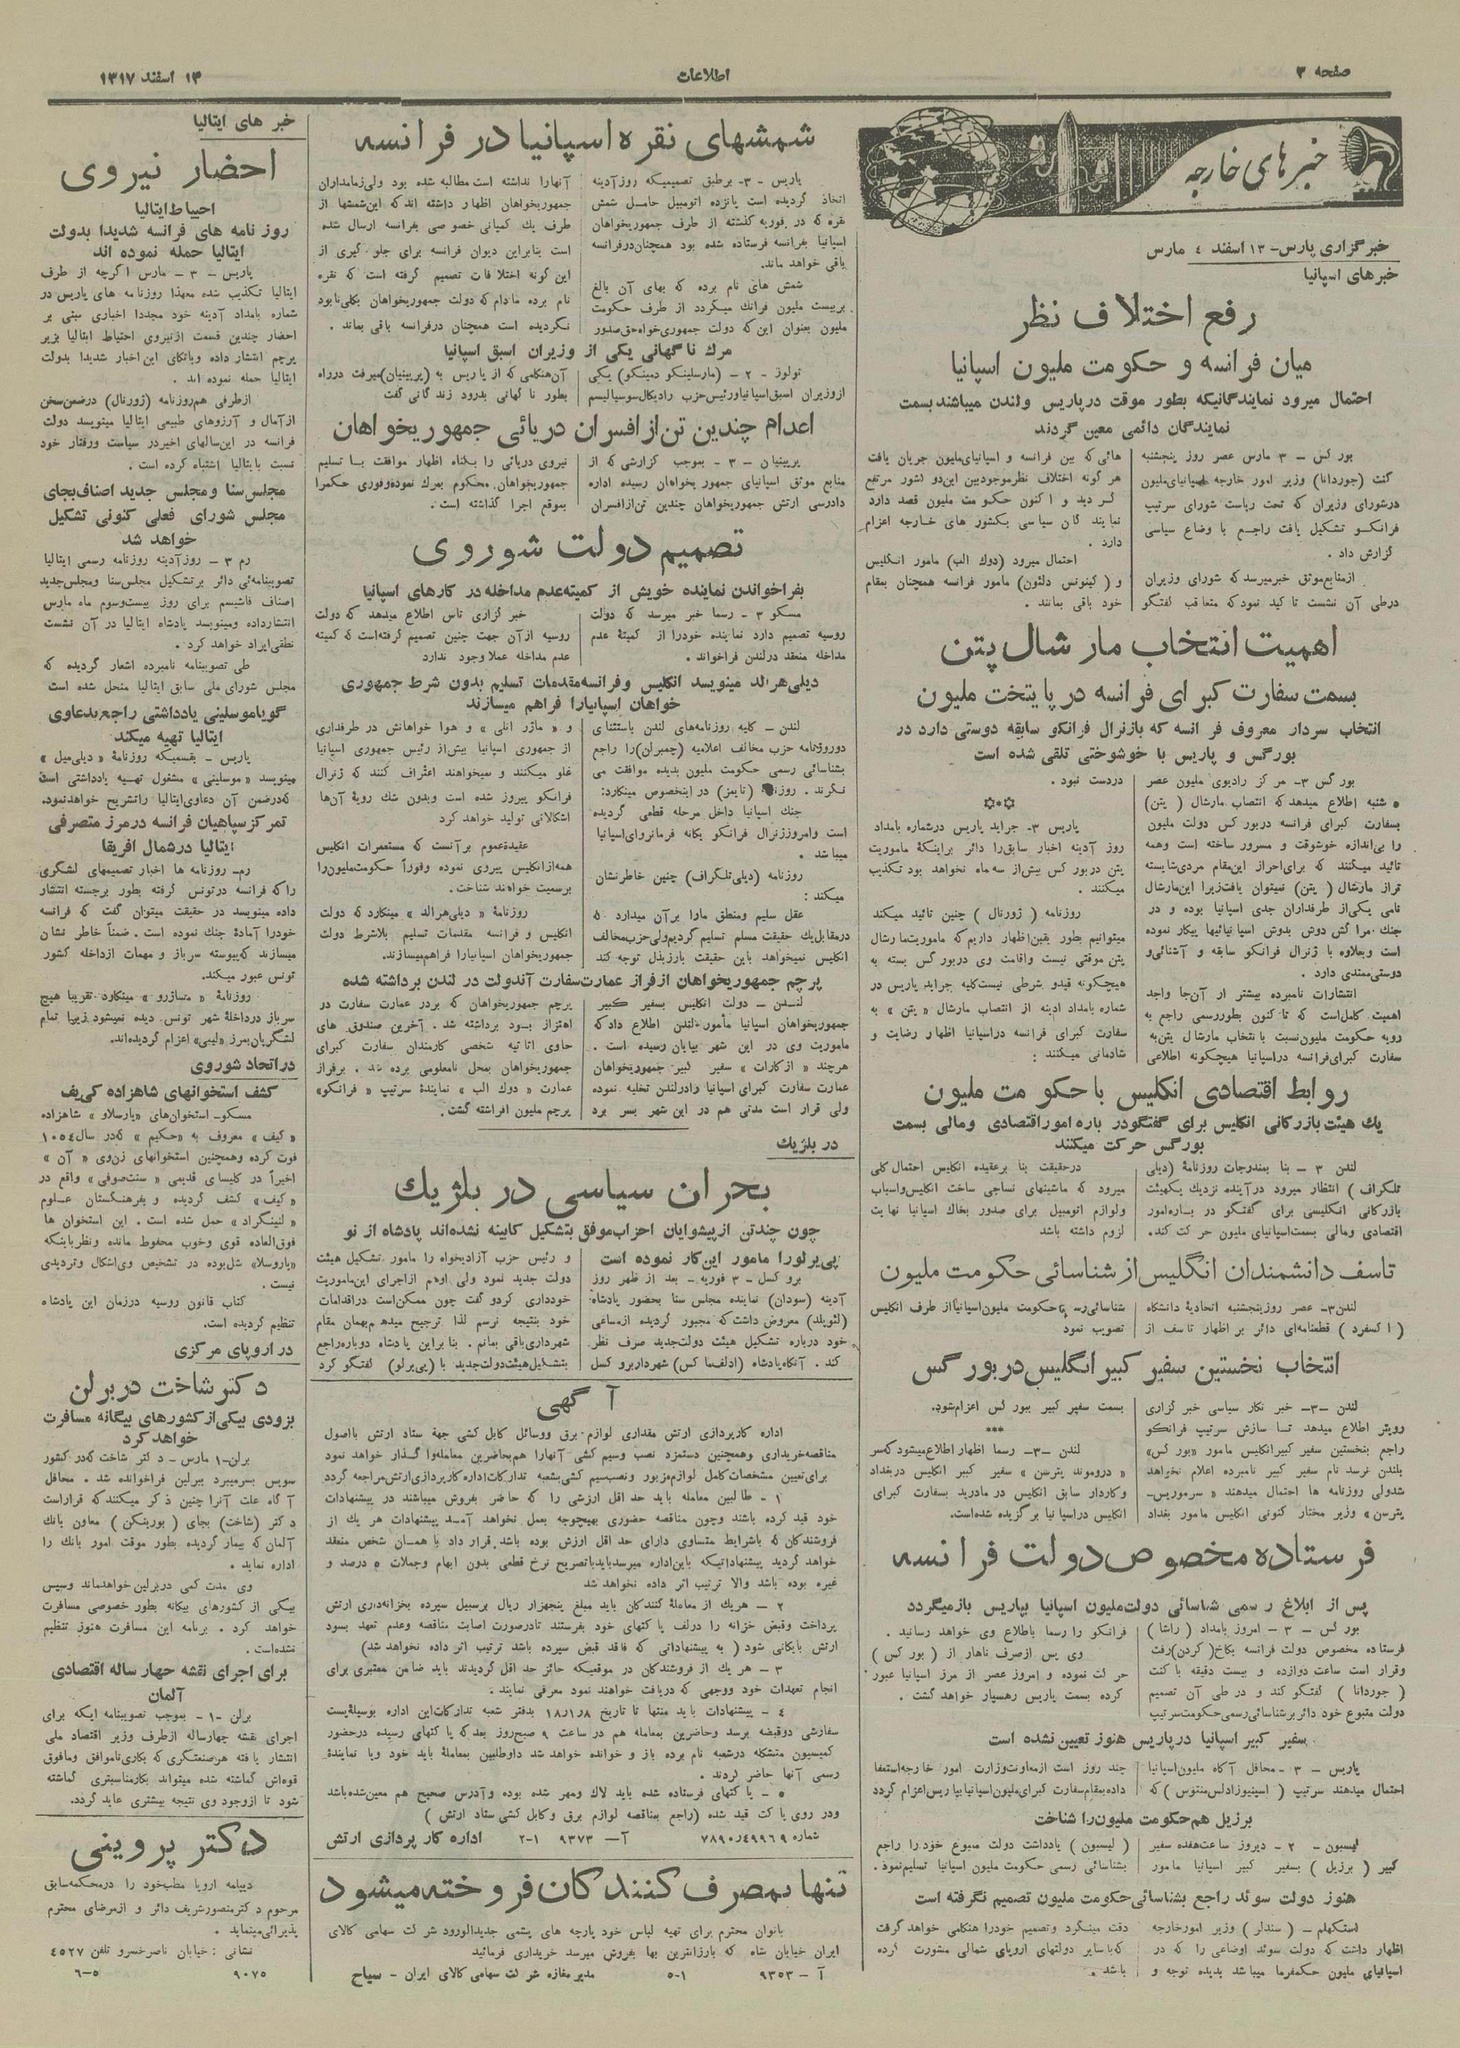 صفحه ۳
اطلاعات
۱۳ اسفند ۱۳۱۷
خبرهای خارجه
خبرگزاری پارس- ۱۳ اسفند ٤ مارس
خبرهای اسپانیا
رفع اختلاف نظر
میان فرانسه و حکومت ملیون اسپانیا
احتمال میرود نمایندگانیکه بطور موقت درپاریس ولندن میباشند بسمت
نمایندگان دائمی معین گردند
بورگس – ۳ مارس عصر روز پنجشنبه
کنت (جوردانا) وزیر امور خارجه اسپانیای ملیون
درشورای وزیران که تحت ریاست شورای سرتیپ
فرانکو تشکیل یافت راجع با وضاع سیاسی
گزارش داد .
ازمنابع موثق خبرمیرسد که شورای وزیران
درطی آن نشست تاکید نمود که متعاقب گفتگو
هائی که بین فرانسه و اسپانیای ملیون جریان یافت
هر گونه اختلاف نظر موجود بین این دو کشور مرتفع
گردید و اکنون حکومت ملیون قصد دارد
نمایندگان سیاسی بکشور های خارجه اعزام
دارد .
احتمال میرود (دوك الب) مامور انگلیس
و (کینونس دلئون) مامور فرانسه همچنان بمقام
خود باقی بمانند .
اهمیت انتخاب مارشال پتن
بسمت سفارت کبرای فرانسه در پایتخت ملیون
انتخاب سردار معروف فرانسه که باژنرال فرانکو سابقه دوستی دارد در
بورگس و پاریس با خوشوختی تلقی شده است
بورگس ۳- مرکز رادیوی ملیون عصر
٥ شنبه اطلاع میدهد که انتصاب مارشال ( پتن )
بسفارت کبرای فرانسه دربورگس دولت ملیون
را بی‌اندازه خوشوقت و مسرور ساخته است وهمه
تائید میکنند که برای احراز این مقام مردی شایسته
تراز مارشال ( پتن) نمیتوان یافت زیرا این مارشال
نامی یکی از طرفداران جدی اسپانیا بوده و در
جنك مراکش دوش بدوش اسپانیائیها پیکار نموده
است وبعلاوه با ژنرال فرانکو سابقه و آشنائی و
دوستی ممتدی دارد .
انتشارات نامبرده بیشتر از آن جا واجد
اهمیت کامل است که تاکنون بطوررسمی راجع به
رویه حکومت ملیون نسبت با نتخاب مارشال پتن به
سفارت کبرای فرانسه دراسپانیا هیچگونه اطلاعی
دردست نبود .
پاریس ۳- جراید پاریس درشماره بامداد
روز آدینه اخبار سابق را دائر براینکه ماموریت
پتن دربورگس بیش از سه ماه نخواهد بود تکذیب
میکنند .
روزنامه (ژورنال ) چنین تائید میکند
میتوانیم بطور یقین اظهار داریم که ماموریت مارشال
پتن موقتی نیست واقامت وی دربورگس بسته به
هیچگونه قیدو شرطی نیست کلیه جراید پاریس در
شماره بامداد آدینه از انتصاب مارشال « پتن » به
سفارت کبرای فرانسه دراسپانیا اظهار رضایت و
شادمانی میکنند :
روابط اقتصادی انگلیس با حکومت ملیون
یك هیئت بازرگانی انگلیس برای گفتگو در باره امور اقتصادی ومالی بسمت
بورگس حرکت میکنند
لندن ۳ – بنا بمندرجات روزنامۀ (دیلی
تلگراف ) انتظار میرود درآینده نزدیك یکهیئت
بازرگانی انگلیسی برای گفتگو در باره امور
اقتصادی ومالی بسمت اسپانیای ملیون حرکت کند.
درحقیقت بنا برعقیده انگلیس احتمال کلی
میرود که ماشینهای نساجی ساخت انگلیس واسباب
ولوازم اتومبیل برای صدور بخاك اسپانیا نهایت
لزوم داشته باشد
تاسف دانشمندان انگلیس از شناسائی حکومت ملیون
لندن ۳- عصر روز پنجشنبه اتحادیۀ دانشگاه
( اکسفرد ) قطعنامه‌ای دائر بر اظهار تاسف از
شناسائی رسمی حکومت ملیون اسپانیا از طرف انگلیس
تصویب نمود
انتخاب نخستین سفیر کبیر انگلیس در بورگس
لندن –۳- خبر نگار سیاسی خبر گزاری
رویتر اطلاع میدهد تسا سازش سرتیپ فرانکو
راجع بنخستین سفیر کبیر انگلیس مامور «بورگس»
بلندن نرسد نام سفیر کبیر نامبرده اعلام نخواهد
شد ولی روزنامه ها احتمال میدهند « سرموریس-
پترسن » وزیر مختار کنونی انگلیس مامور بغداد
بسمت سفیر کبیر ببورگس اعزام شود.
***
لندن –۳- رسما اظهار اطلاع میشود که سر
« دروموند پترسن » سفیر کبیر انگلیس دربغداد
وکاردار سابق انگلیس در مادرید بسفارت کبرای
انگلیس دراسپانیا برگزیده شده است.
فرستاده مخصوص دولت فرانسه
پس از ابلاغ رسمی شناسائی دولت ملیون اسپانیا بپاریس بازمیگردد
بورگس – ۳ – امروز بامداد ( راشا )
فرستاده مخصوص دولت فرانسه بکاخ( کردن) رفت
وقرار است ساعت دوازده و بیست دقیقه با کنت
( جوردانا ) گفتگو کند و در طی آن تصمیم
دولت متبوع خود دائر برشناسائی رسمی حکومت سرتیپ
فرانکو را رسما باطلاع وی خواهد رسانید .
وی پس ازصرف ناهار از ( بورگس )
حرکت نموده و امروز عصر از مرز اسپانیا عبور
کرده بسمت پاریس رهسپار خواهد گشت .
سفیر کبیر اسپانیا درپاریس هنوز تعیین نشده است
پاریس – ۳ – محافل آگاه ملیون اسپانیا
احتمال میدهند سرتیپ ( اسپنیوزادلس منتوس ) که
چند روز است ازمعاونت وزارت امور خارجه استعفا
داده بمقام سفارت کبرای ملیون اسپانیا بپاریس اعزام گردد
برزیل هم حکومت ملیون را شناخت
لیسبون – ۲ – دیروز ساعت هفده سفیر
کبیر ( برزیل ) بسفیر کبیر اسپانیا مامور
( لیسبون ) یادداشت دولت متبوع خود را راجع
بشناسائی رسمی حکومت ملیون اسپانیا تسلیم نمود.
هنوز دولت سوئد راجع بشناسائی حکومت ملیون تصمیم نگرفته است
استکهلم – ( سندلر ) وزیر امورخارجه
اظهار داشت که دولت سوئد اوضاعی را که در
اسپانیای ملیون حکمفرما میباشد بدیده توجه و
دقت مینگرد وتصمیم خود را هنگامی خواهد گرفت
که با سایر دولتهای اروپای شمالی مشورت کرده
باشد .
شمشهای نقره اسپانیا در فرانسه
پاریس – ۳- برطبق تصمیمیکه روز آدینه
اتخاذ گردیده است پانزده اتومبیل حامل شمش
نقره که در فوریه گذشته از طرف جمهوریخواهان
اسپانیا بفرانسه فرستاده شده بود همچنان درفرانسه
باقی خواهد ماند.
شمش های نام برده که بهای آن بالغ
بربیست ملیون فرانك میگردد از طرف حکومت
ملیون بعنوان این که دولت جمهوری خواه حق صدور
آنهارا نداشته است مطالبه شده بود ولی زمامداران
جمهوریخواهان اظهار داشته اند که این شمشها از
طرف یك کمپانی خصوصی بفرانسه ارسال شده
است بنابراین دیوان فرانسه برای جلوگیری از
این گونه اختلافات تصمیم گرفته است که نقره
نام برده مادام که دولت جمهوریخواهان بکلی نابود
نگردیده است همچنان درفرانسه باقی بماند .
مرك ناگهانی یکی از وزیران اسبق اسپانیا
تولوز – ۲ – (مارسلینکو دمینکو) یکی
ازوزیران اسبق اسپانیا ورئیس حزب رادیکال سوسیالیسم
آن هنگامی که از پاریس به (پرپینیان) میرفت درراه
بطور نا گهانی بدرود زندگانی گفت
اعدام چندین تن از افسران دریائی جمهوریخواهان
پرپینیان – ۳ – بموجب گزارشی که از
منابع موثق اسپانیای جمهوریخواهان رسیده اداره
دادرسی ارتش جمهوریخواهان چندین تن از افسران
نیروی دریائی را بگناه اظهار موافقت با تسلیم
جمهوریخواهان محکوم بمرك نموده وفوری حکم را
بموقع اجرا گذاشته است .
تصمیم دولت شوروی
بفراخواندن نماینده خویش از کمیته عدم مداخله در کارهای اسپانیا
مسکو ۳ – رسما خبر میرسد که دولت
روسیه تصمیم دارد نماینده خودرا از کمیتۀ عدم
مداخله منعقد درلندن فراخواند.
خبر گزاری تاس اطلاع میدهد که دولت
روسیه ازآن جهت چنین تصمیم گرفته است که کمیته
عدم مداخله عملا وجود ندارد
دیلی هرالد مینویسد انگلیس وفرانسه مقدمات تسلیم بدون شرط جمهوری
خواهان اسپانیارا فراهم میسازند
لندن – کلیه روزنامه‌های لندن باستثنای
دو روزنامه حزب مخالف اعلامیه (چمبرلن) را راجع
بشناسائی رسمی حکومت ملیون بدیده موافقت می
نگرند . روزنامه (تایمز) در اینخصوص مینگارد:
جنك اسپانیا داخل مرحله قطعی گردیده
است وامروز ژنرال فرانکو یگانه فرمانروای اسپانیا
میباشد .
روزنامه (دیلی تلگراف) چنین خاطرنشان
میکند :
عقل سلیم ومنطق مارا برآن میدارد که
درمقابل یك حقیقت مسلم تسلیم گردیم ولی حزب مخالف
انگلیس نمیخواهد باین حقیقت بارز بذل توجه کند
و « ماژر اتلی » و هوا خواهانش در طرفداری
از جمهوری اسپانیا بیش از رئیس جمهوری اسپانیا
غلو میکنند و نمیخواهند اعتراف کنند که ژنرال
فرانکو پیروز شده است وبدون شك رویۀ آن‌ها
اشکالاتی تولید خواهد کرد
عقیده عموم برآنست که مستعمرات انگلیس
همه از انگلیس پیروی نموده وفوراً حکومت ملیون را
برسمیت خواهند شناخت .
روزنامۀ « دیلی هرالد » مینگارد که دولت
انگلیس و فرانسه مقدمات تسلیم بلاشرط دولت
جمهوریخواهان اسپانیارا فراهم میسازند.
پرچم جمهوریخواهان ازفراز عمارت سفارت آندولت در لندن برداشته شده
لندن – دولت انگلیس بسفیر کبیر
جمهوریخواهان اسپانیا مأمور لندن اطلاع داد که
ماموریت وی در این شهر بپایان رسیده است .
هرچند « ازکارات » سفیر کبیر جمهوریخواهان
عمارت سفارت کبرای اسپانیا رادرلندن تخلیه نموده
ولی قرار است مدتی هم در این شهر بسر برد
پرچم جمهوریخواهان که بردر عمارت سفارت در
اهتزاز بسود برداشته شد . آخرین صندوق های
حاوی اثاثیه شخصی کارمندان سفارت کبرای
جمهوریخواهان بمحل نامعلومی برده شد . برفراز
عمارت « دوك الب » نمایندۀ سرتیپ «فرانکو»
پرچم ملیون افراشته گشت.
در بلژیك
بحران سیاسی در بلژیك
چون چندتن ازپیشوایان احزاب موفق بتشکیل کابینه نشده‌اند پادشاه از نو
پی‌یرلورا مامور این کار نموده است
بروکسل – ۳ فوریه – بعد از ظهر روز
آدینه (سودان) نماینده مجلس سنا بحضور پادشاه
(لئوپلد) معروض داشت که مجبور گردیده ازمساعی
خود درباره تشکیل هیئت دولت جدید صرف نظر
کند . آنگاه پادشاه (ادلف ماکس) شهردار بروکسل
و رئیس حزب آزادیخواه را مامور تشکیل هیئت
دولت جدید نمود ولی اوهم ازاجرای این ماموریت
خودداری کرد و گفت چون ممکن است دراقدامات
خود بنتیجه نرسم لذا ترجیح میدهم بهمان مقام
شهرداری باقی بمانم . بنا براین پادشاه دوباره راجع
بتشکیل هیئت دولت جدید با (پی‌یرلو) گفتگو کرد
آگهی
اداره کارپردازی ارتش مقداری لوازم برق ووسائل کابل کشی جهة ستاد ارتش بااصول
مناقصه خریداری وهمچنین دستمزد نصب وسیم کشی آنهارا هم بحاضرین معامله واگذار خواهد نمود
برای تعیین مشخصات کامل لوازم مزبور ونصب سیم کشی بشعبه تدارکات اداره کارپردازی ارتش مراجعه گردد
۱ – طالبین معامله باید حد اقل ارزشی را که حاضر بفروش میباشند در پیشنهادات
خود قید کرده باشند وچون مناقصه حضوری بهیچوجه بعمل نخواهد آمد پیشنهادات هر یك از
فروشندگان که باشرایط متساوی دارای حد اقل ارزش بوده باشد قرار داد با همان شخص منعقد
خواهد گردید پیشنهاداتیکه باین اداره میرسد باید با تصریح نرخ قطعی بدون ابهام وجملات ٥ درصد و
غیره بوده باشد والا ترتیب اثر داده نخواهد شد
۲ – هریك از معامله کنندگان باید مبلغ پنجهزار ریال برسبیل سپرده بخزانه‌داری ارتش
پرداخت وقبض خزانه را درلف پاکتهای خود بفرستند تادرصورت اصابت مناقصه وعدم تعهد بسود
ارتش بایگانی شود ( به پیشنهاداتی که فاقد قبض سپرده باشد ترتیب اثر داده نخواهد شد)
۳ – هر یك از فروشندگان در موقعیکه حائز حد اقل گردیدند باید ضامن معتبری برای
انجام تعهدات خود ووجهی که دریافت خواهند نمود معرفی نمایند .
٤ – پیشنهادات باید منتها تا تاریخ ۱۸ر۱ر۸ بدفتر شعبه تدارکات این اداره بوسیله پست
سفارشی دوقبضه برسد وحاضرین بمعامله هم در ساعت ۹ صبح روز بعد که پاکتهای رسیده درحضور
کمیسیون متشکله درشعبه نام برده باز و خوانده خواهد شد داوطلبین بمعاملۀ باید خود ویا نمایندۀ
رسمی آنها حاضر گردند .
٥ – پاکتهای فرستاده شده باید لاك ومهر شده بوده وآدرس صحیح هم معین شده باشد
ودر روی پاکت قید شده (راجع بمناقصه لوازم برق وکابل کشی ستاد ارتش )
شماره ۷۸۹۰ر٤۹۹٦۹ آ – ۹۳۷۳ ۱-۲ اداره کارپردازی ارتش
تنها بمصرف کنندگان فروخته میشود
بانوان محترم برای تهیه لباس خود پارچه های پشمی جدیدالورود شرکت سهامی کالای
ایران خیابان شاه که بارزانترین بها بفروش میرسد خریداری فرمائید
آ – ۹۳۵۳ ۱-۵ مدیر مغازه شرکت سهامی کالای ایران – سیاح
خبر های ایتالیا
احضار نیروی
احیباط ایتالیا
روزنامه های فرانسه شدیدا بدولت
ایتالیا حمله نموده اند
پاریس – ۳ – مارس اگرچه از طرف
ایتالیا تکذیب شده معهذا روزنامه های پاریس در
شماره بامداد آدینه خود مجددا اخباری مبنی بر
احضار چندین قسمت ازنیروی احتیاط ایتالیا بزیر
پرچم انتشار داده وباتکای این اخبار شدیدا بدولت
ایتالیا حمله نموده اند .
ازطرفی هم روزنامه (ژورنال) درضمن سخن
ازآمال و آرزوهای طبیعی ایتالیا مینویسد دولت
فرانسه در این سالهای اخیردر سیاست ورفتار خود
نسبت بایتالیا اشتباه کرده است .
مجلس سنا ومجلس جدید اصناف بجای
مجلس شورای فعلی کنونی تشکیل
خواهد شد
رم ۳ – روزآدینه روزنامه رسمی ایتالیا
تصویبنامه‌ئی دائر برتشکیل مجلس سنا ومجلس جدید
اصناف فاشیسم برای روز بیست وسوم ماه مارس
انتشارداده ومینویسد پادشاه ایتالیا در آن نشست
نطقی ایراد خواهد کرد .
طی تصویبنامه نامبرده اشعار گردیده که
مجلس شورای ملی سابق ایتالیا منحل شده است
گویا موسلینی یادداشتی راجع بدعاوی
ایتالیا تهیه میکند
پاریس – بقسمیکه روزنامۀ « دیلی میل »
مینویسد «موسلینی» مشغول تهیه یادداشتی است
که درضمن آن دعاوی ایتالیا راتشریح خواهد نمود.
تمرکز سپاهیان فرانسه درمرز متصرفی
ایتالیا درشمال افریقا
رم- روزنامه ها اخبار تصمیمهای لشگری
را که فرانسه درتونس گرفته بطور برجسته انتشار
داده مینویسد در حقیقت میتوان گفت که فرانسه
خودرا آمادۀ جنك نموده است . ضمناً خاطر نشان
میسازند که پیوسته سرباز و مهمات ازداخله کشور
تونس عبور میکند.
روزنامۀ « مساژرو » مینگارد تقریبا هیچ
سرباز درداخلۀ شهر تونس دیده نمیشود زیرا تمام
لشگریان بمرز «لیبی» اعزام گردیده‌اند.
در اتحاد شوروی
کشف استخوانهای شاهزاده کی‌یف
مسکو- استخوان‌های «یارسلاو» شاهزاده
« کیف » معروف به «حکیم » که در سال ۱۰۵٤
فوت کرده وهمچنین استخوانهای زن وی « آن »
اخیراً در کلیسای قدیمی «سنت صوفی» واقع در
« کیف » کشف گردیده و بفرهنگستان علوم
« لنینگراد » حمل شده است . این استخوان ها
فوق‌العاده قوی وخوب محفوظ مانده ونظر باینکه
«یاروسلا» شل بوده در تشخیص وی اشکال وتردیدی
نیست .
کتاب قانون روسیه درزمان این پادشاه
تنظیم گردیده است.
در اروپای مرکزی
دکتر شاخت در برلن
بزودی بیکی از کشورهای بیگانه مسافرت
خواهد کرد
برلن-۱ مارس – دکتر شاخت که در کشور
سویس بسرمیبرد ببرلین فراخوانده شد . محافل
آگاه علت آنرا چنین ذکر میکنند که قراراست
دکتر (شاخت) بجای ( بورینکن) معاون بانك
آلمان که بیمار گردیده بطور موقت امور بانك را
اداره نماید .
وی مدت کمی دربرلین خواهد ماند وسپس
بیکی از کشورهای بیگانه بطور خصوصی مسافرت
خواهد کرد . برنامه این مسافرت هنوز تنظیم
نشده است .
برای اجرای نقشه چهار ساله اقتصادی
آلمان
برلن –۱- بموجب تصویبنامه ایکه برای
اجرای نقشه چهارساله ازطرف وزیر اقتصاد ملی
انتشار یافته هرصنعتگری که بکاری ناموافق ومافوق
قوه‌اش گماشته شده میتواند بکارمناسبتری گماشته
شود تا ازوجود وی نتیجه بیشتری عاید گردد.
دکتر پروینی
دیپلمه اروپا مطب خود را درمحکمه سابق
مرحوم دکتر منصورشریف دائر و ازمرضای محترم
پذیرائی مینماید .
نشانی : خیابان ناصرخسرو تلفن ٤۵۲۷
۹۰۷۵ ۵-٦